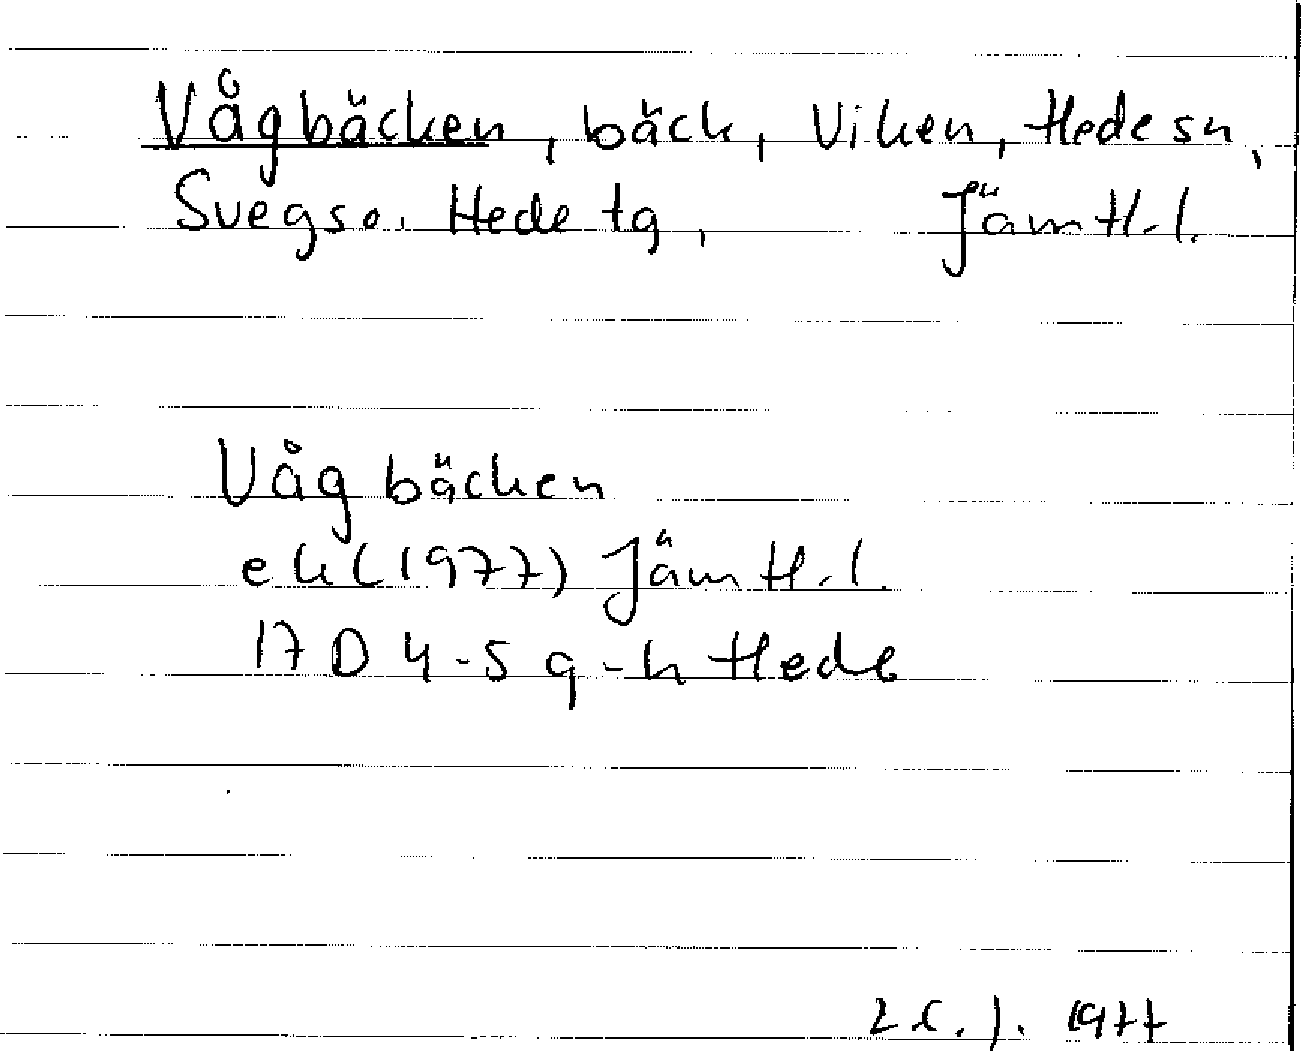 Vågbäcken, bäck, Viken, Hede sn,
Svegs o. Hede tg, Jämtl. l.
Vågbäcken
ek (1977) Jämtl. l.
17 D 4-5 g-h Hede
1977